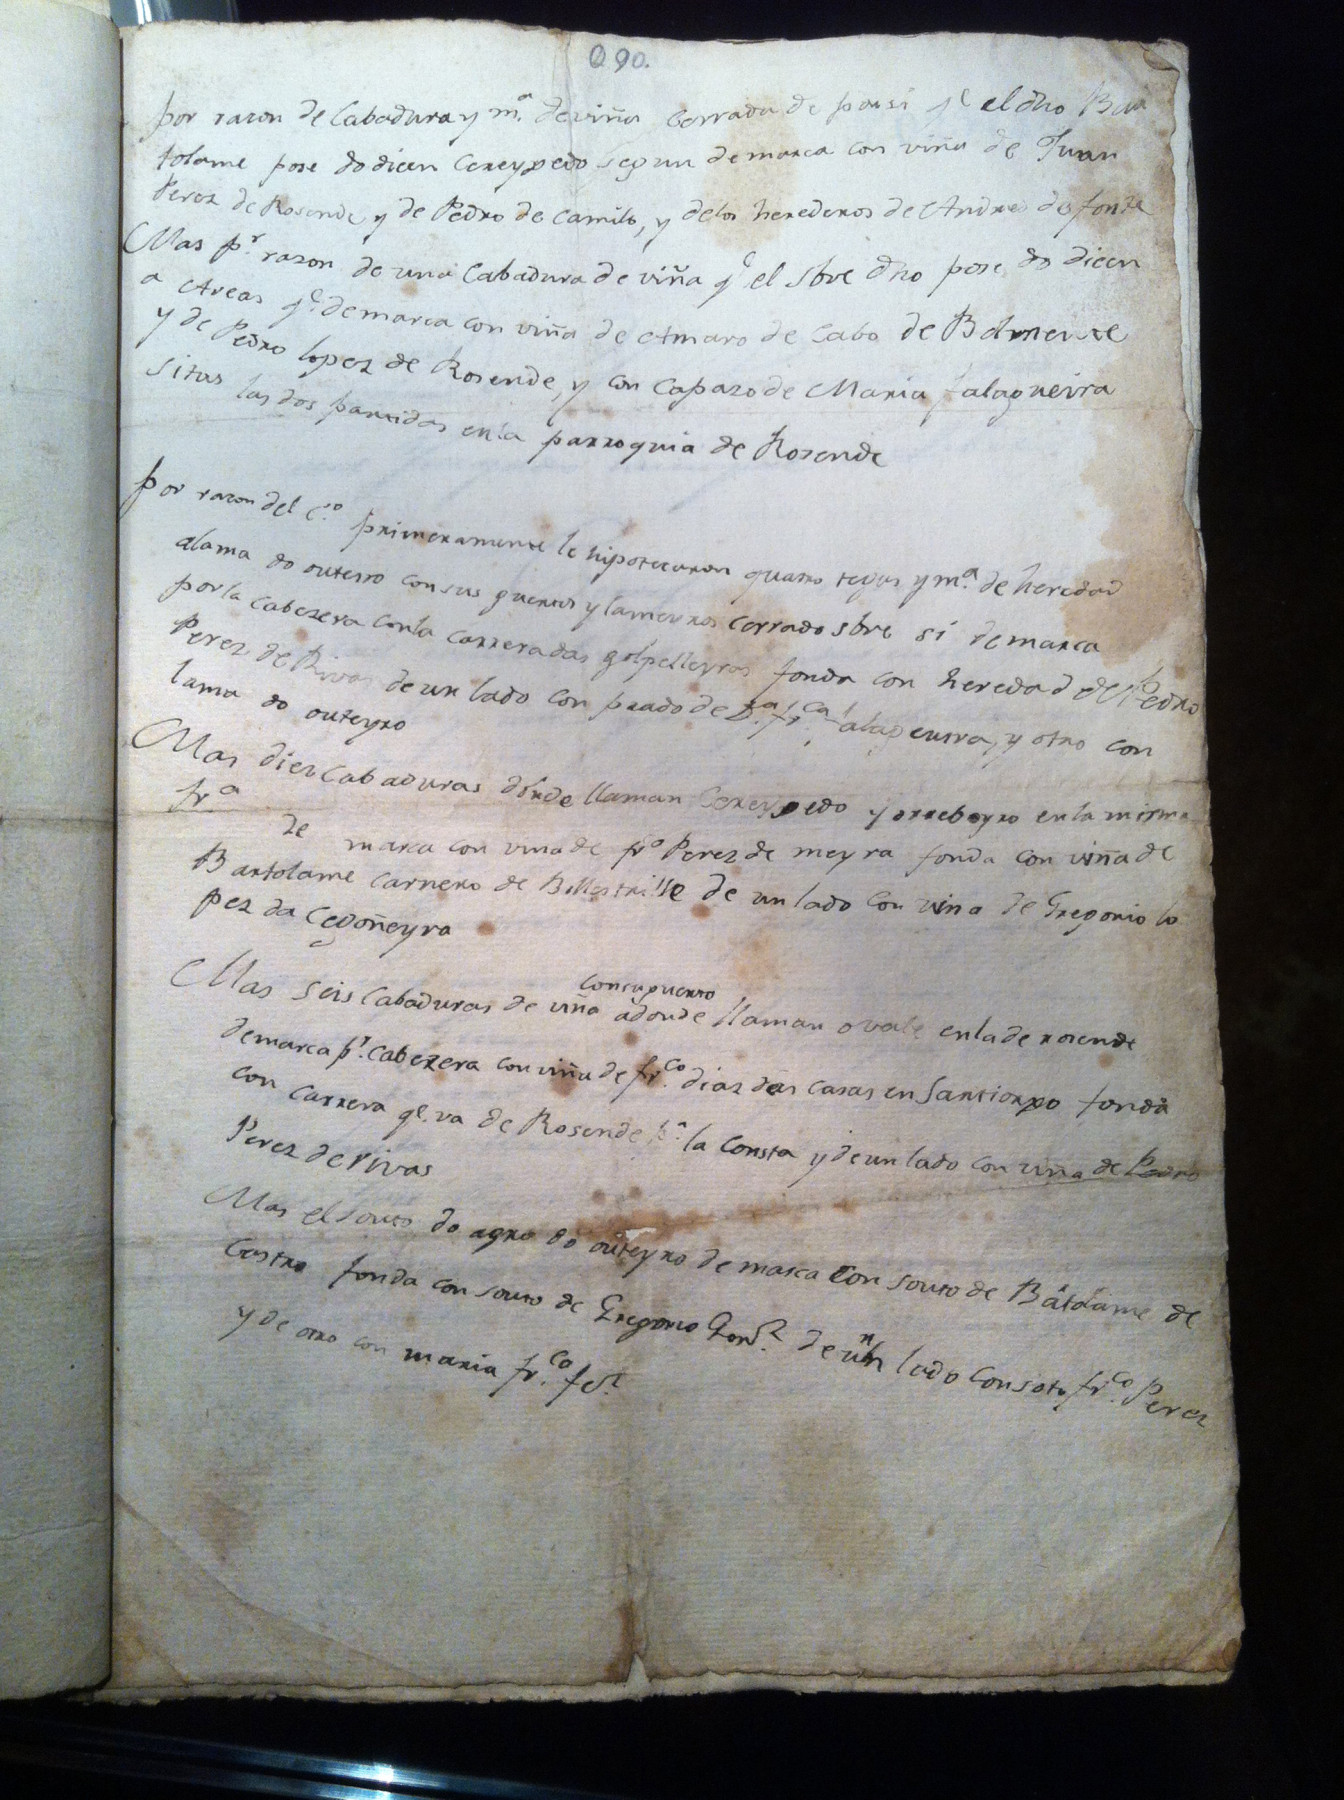 090.
por razon de Cabadura y mª. de viña Cerrada de por si qe el dho Bar
tolame pose do dicen Cereyxedo segun demarca con viña de Juan
Perez de Rosende, y de Pedro de Camilo, y delos herederos de Andres de fonte
Mas pr. razon de una Cabadura de viña qe el sbre dho pose, do dicen
a Areas qe. demarca con viña de Amaro de Cabo de
y de Pedro lopez de Rosende, y con Capazo de Maria falagueira
sitas las dos partidas enla parroquia de Rosende
Por razon del Co. primeramente le hipotecaron quatro tegas y mª. de heredad
alama do outeiro con sus guertos y lameyros Cerrado sbre si demarca
por la Cabezera conla Carrera das golpelleyras fonda con heredad de Pedro
Perez de Rivas de un lado con prado de Dª. frca. falagueira, y otro con
lama do outeyro
Mas diez Cabaduras donde llaman Cereyxedo y enla misma
frª demarca con viña de fro Perez de meyra fonda con viña de
Bartolame Carnero de de un lado con vina de Gregorio lo
pez da Cegoñeyra
Mas seis Cabaduras de viña consupuerto adonde llaman ovale enla de rosende
demarca pr. Cabezera con viña de frco. diaz das casas en fonda
con Carrera qe. va de Rosende pª. la Consta y de un lado con viña de Pedro
Perez de rivas
Mas el souto do agro do outeyro demarca Con souto de Batolame de
Castro fonda con souto de Gregorio Gonz. de un lado con soto frco. Perez
y de otro con maria frca. fez.